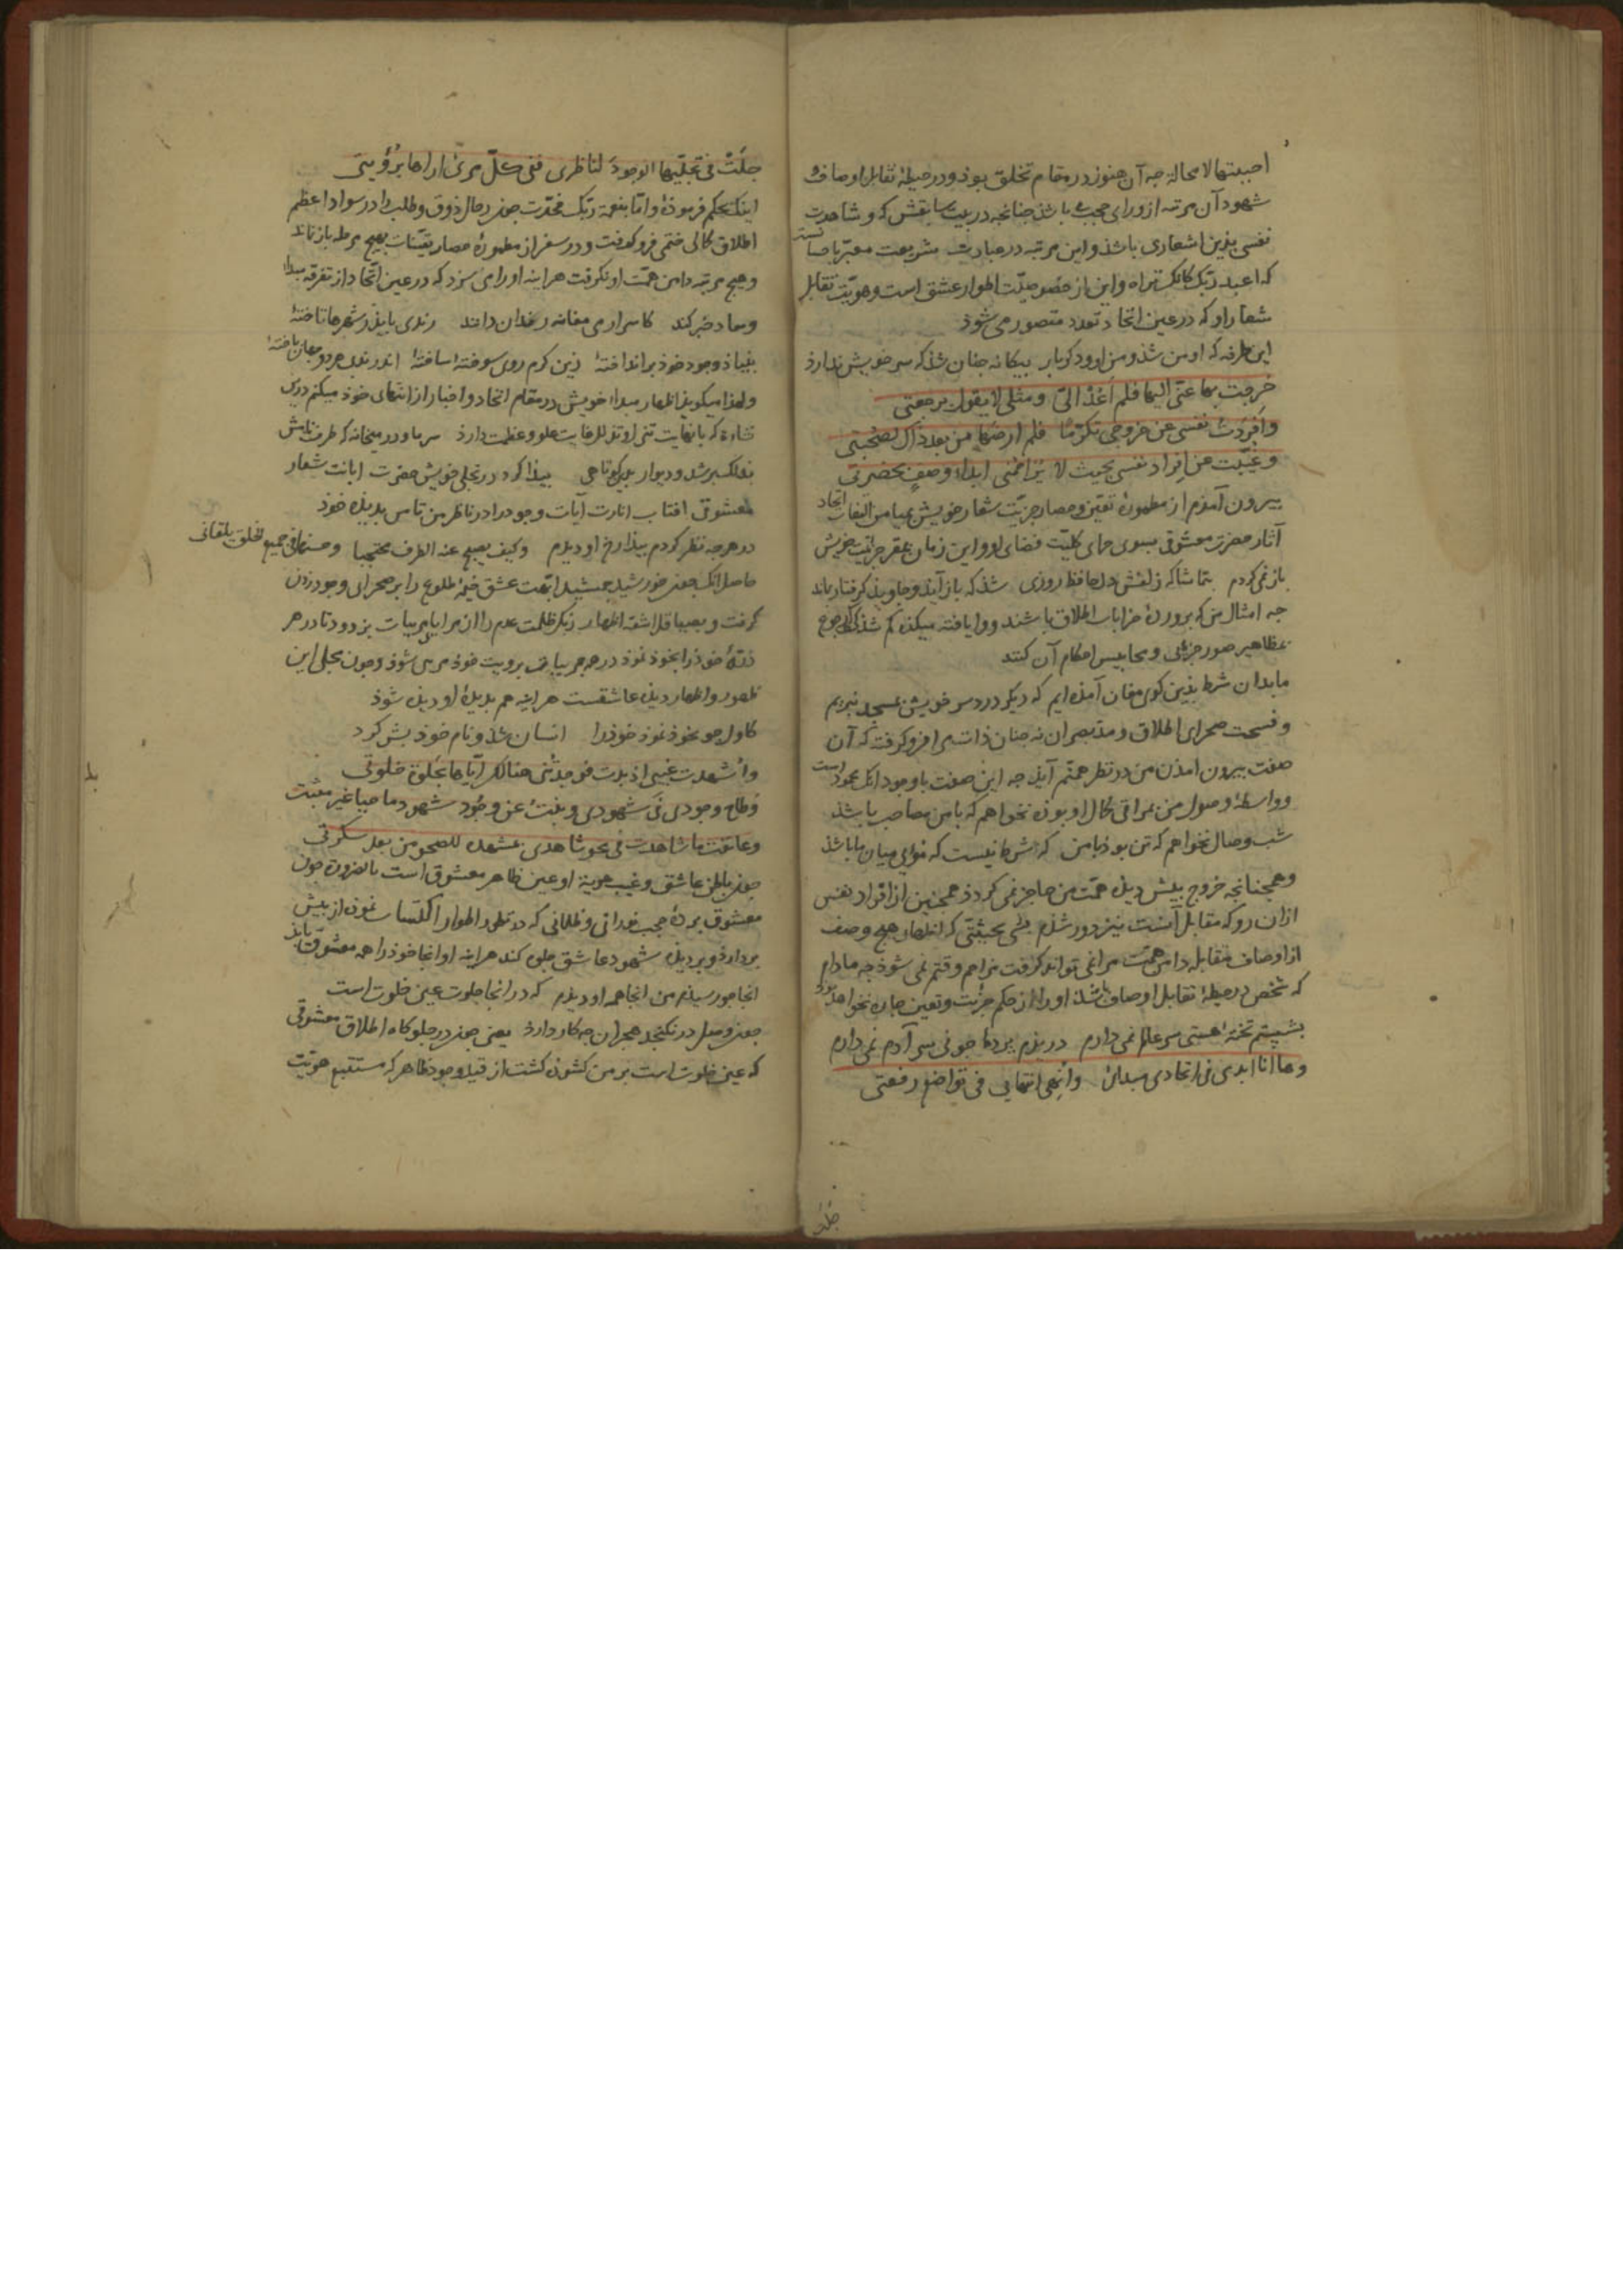 احببتها لا محاله جه آن هنوز در مقام تخلق بوذ و در حیطهٔ تقابل اوصاف
شهود آن مرتبه از ورای حجب باشذ جنانجه در بیت سابقش که و شاهدت
نفسی بذین اشعاری باشذ و این مرتبه در عبارت شریعت معبر باحسا
که اعبد ربک کانک تراه و این از خصوصیت اطوار عشق است و هویت تقابل
شعار او که در عین اتحاد تعدد متصور می شوذ
این طرفه که او من شذ و من او و دکر یار بیکانه جنان شذ که سر خویش ندارذ
خرجت بها عنی الیها فلم اعد الی و مثلی لا یقول برجعتی
وافردت نفسی عن خروجی تکرما فلم ارضها من بعد ذاک لصحبتی
وغیبت عن افراد نفسی بحیث لا یزاحمنی ابداء وصف بحضرتی
بیرون آمذم از مطمورهٔ تعین و حصار جزئیت شعار خویش بمیامن التفات اتحاد
آثار حضرت معشوق بسوی حمای کلیت فضای او و این زمان بمقر جزئیت خویش
باز نمی کردم بتماشاکه زلفش دل حافظ روزی شذ که باز آیذ و جاویذ کرفتار بماند
جه امثال من که برورده خرابات اطلاق باشند و وا یافته میکده کم شذکی رجوع
بمظاهر صور جزئی و محابیس احکام آن کنند
ما بدان شرط بذین کوی مغان آمذه ایم که دیکر درد سر خویش بمسجد نبریم
و فسحت صحرای اطلاق و مد بصر ان نه جنان ذات مرا فرو کرفته که آن
صفت بیرون امذن من در نظر همتم آیذ جه این صفت با وجود انک محمود است
و واسطهٔ وصول من بمراقی کمال او بوذه نخواهم که با من مصاحب باشذ
شب وصال نخواهم که تن بوذ با من که شرط نیست که موئی میان ما باشذ
و همجنانجه خروج بیش دیده همت من حاجز نمی کردذ همجنین از افراد نفس
ازان رو که مقابل آنست نیز دور شذم بحیثیتی که اظهار هیج وصف
از اوصاف متقابله دامن همت مرا نمی تواند کرفت و مزاحم وقتم نمی شوذ جه مادام
که شخص در حیطهٔ تقابل اوصاف باشذ او را از حکم جزئیت و تعین جاره نخواهد بوذ
بشستم تختهٔ هستی سر عالم نمی دارم دریذم بردهٔ جونی سر آدم نمی دارم
وها انا ابدی فی اتحادی مبدائ وانهی انتهایی فی تواضع رفعتی
جلت فی تجلیها الوجود لناظری ففی کل مرئی اراها برؤیتی
اینک بحکم فرموذهٔ و اما بنعمة ربک فحدث جون رحال ذوق و طلب را در سواد اعظم
اطلاق کمالی ختمی فرو کرفت و در سفر از مطمورهٔ حصار تعینات بهیج مرحله باز نماند
و هیج مرتبه دامن همت او نکرفت هراینه او را می سزد که در عین اتحاد از تفرقه مبداء
و معاد خبر کند کاسرار می مغانه رندان دانند رندی باید ز شهرها تاختهٔ
بنیاذ وجود خوذ بر انداختهٔ زین کرم روی سوختهٔ ساختهٔ اندر ندبی هر دو جهان باختهٔ
و لهذا میکویذ اظهار مبداء خویش در مقام اتحاد و اخبار از انتهای خوذ میکنم درین
نشاءه که با نهایت تنزل و تذلل غایت علو و عظمت دارذ سر ما و در میخانه که طرف بامش
بفلک بر شد و دیوار بدین کوتاهی بیذا کرد در تجلی خویش حضرت ابانت شعار
معشوق افتاب انارت آیات وجود را در ناظر من تا من بدیذهٔ خوذ
در هرجه نظر کردم بیذا رخ او دیذم وکیف یصبح عنه الطرف محتجبا وحسنه فی جمیع الخلق یلقانی
حاصل انک جون خورشید جمشید ابهت عشق خیمهٔ طلوع را بر صحرای وجود زدن
کرفت و بصیاقل اشعهٔ اظهار زنکر ظلمت عدم را از مرایای مرئیات بزدود تا در هر
ذرهٔ خوذ را بخوذ نموذ در جه مرئیات برویت خوذ مرئی شوذ و جون مجلی این
ظهور و اظهار دیده عاشقست هراینه هم بدیدهٔ او دیده شوذ
کاول جو بخوذ نموذ خوذ را انسان شذ و نام خوذ بشر کرد
واشهدت غیبی اذ بدت فوجدتنی هنالک ایاها بجلوة خلوتی
وطاح وجودی فی شهودی وبنت عن وجود شهودی ماحیا غیر مثبت
وعانقت ما شاهدت فی محو شاهدی بمشهده للصحو من بعد سکرتی
جون باطن عاشق و غیب هویت او عین ظاهر معشوق است بالضروره جون
معشوق بردهٔ حجب نورانی و ظلمانی که در تطور اطوار اکتساب نموذه از بیش
بردارذ و بر دیذه شهود عاشق جلوه کند هراینه او انجا خوذ را همه معشوق یابذ
انجا جو رسیذم من انجا همه او دیذم که در انجا جلوت عین خلوت است
جون وصل در نکنجد هجران جه کار دارذ یعنی جون در جلوکاه اطلاق معشوقی
که عین خلوت است بر من کشوذه کشت از قید وجود ظاهر که مستتبع هویت